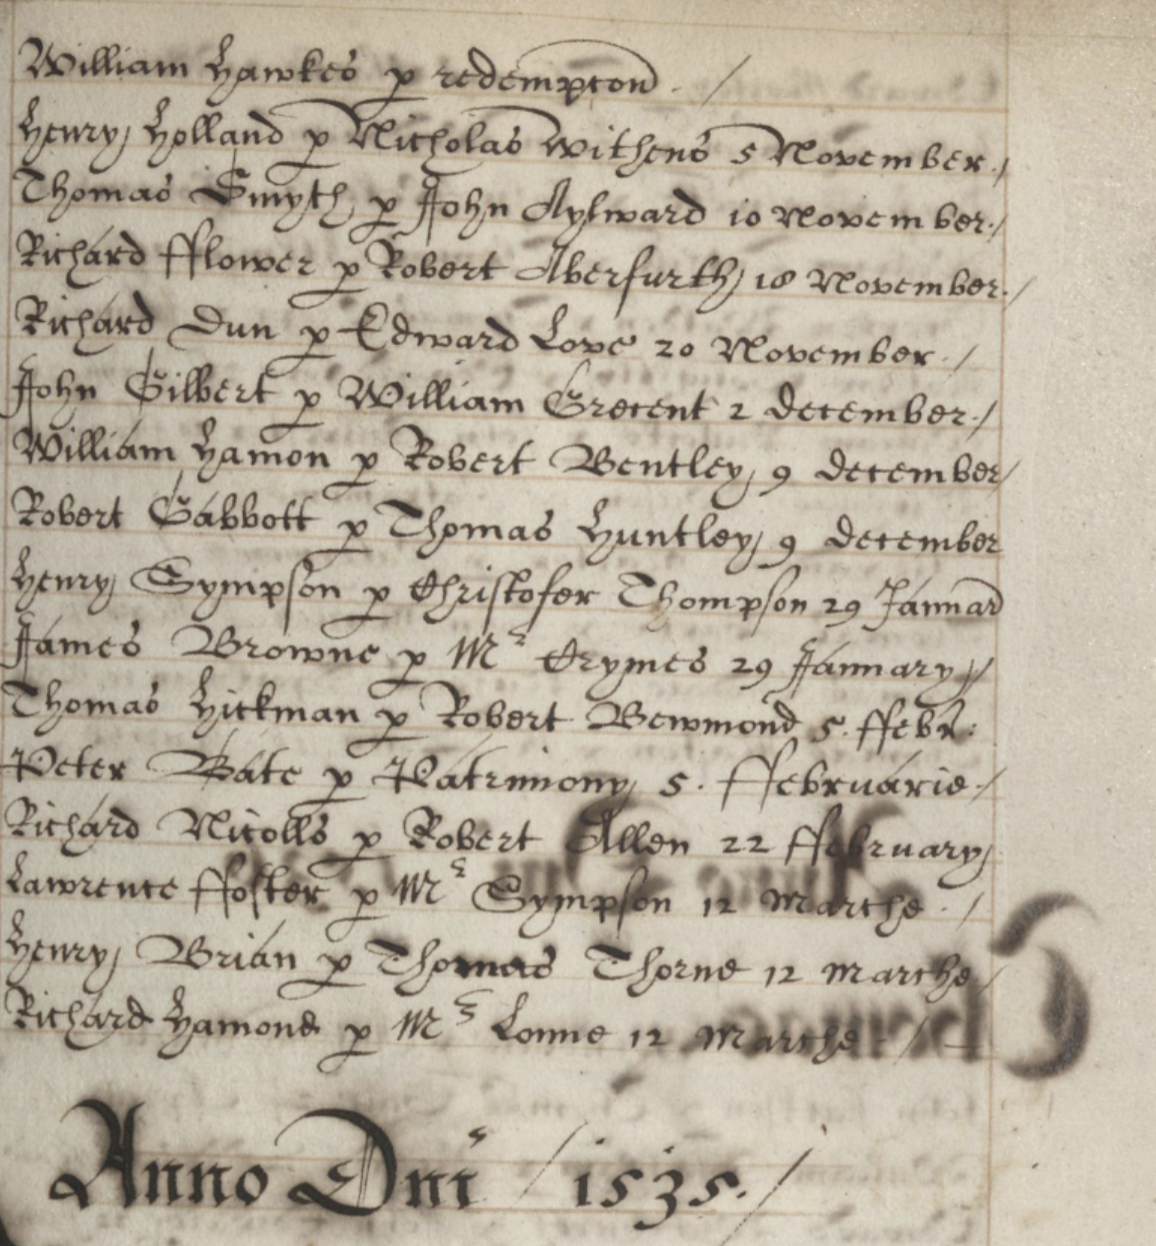 William Hawkes p redempcon . /
Henry Holland p Nicholas Withens 5 November ./
Thomas Smyth p John Aylward 10 November ./
Richard fflower p Robert Aberfurth 18 November ./
Richard Dun p Edward Love 20 November . /
John Gilbert p William Grecent 2 december ./
William Hamon p Robert Bentley 9 december /
Robert Gabbott p Thomas Huntley 9 december
Henry Sympson p Christofer Thompson 29 Januar
James Browne p Mr Crymes 29 January /
Thomas Hickman p Robert Bewmond 5. ffebr:
Peter Bate p Patrimony 5. ffebruarie ./
Richard Nicolls p Robert Allen 22 ffebruary
Lawrence ffoster p Mr Sympson 12 Marche . /
Henry Brian p Thomas Thorne 12 marche /
Richard Hamond p Mrs Lonne 12 Marche . /
Anno Dni / 1535. /